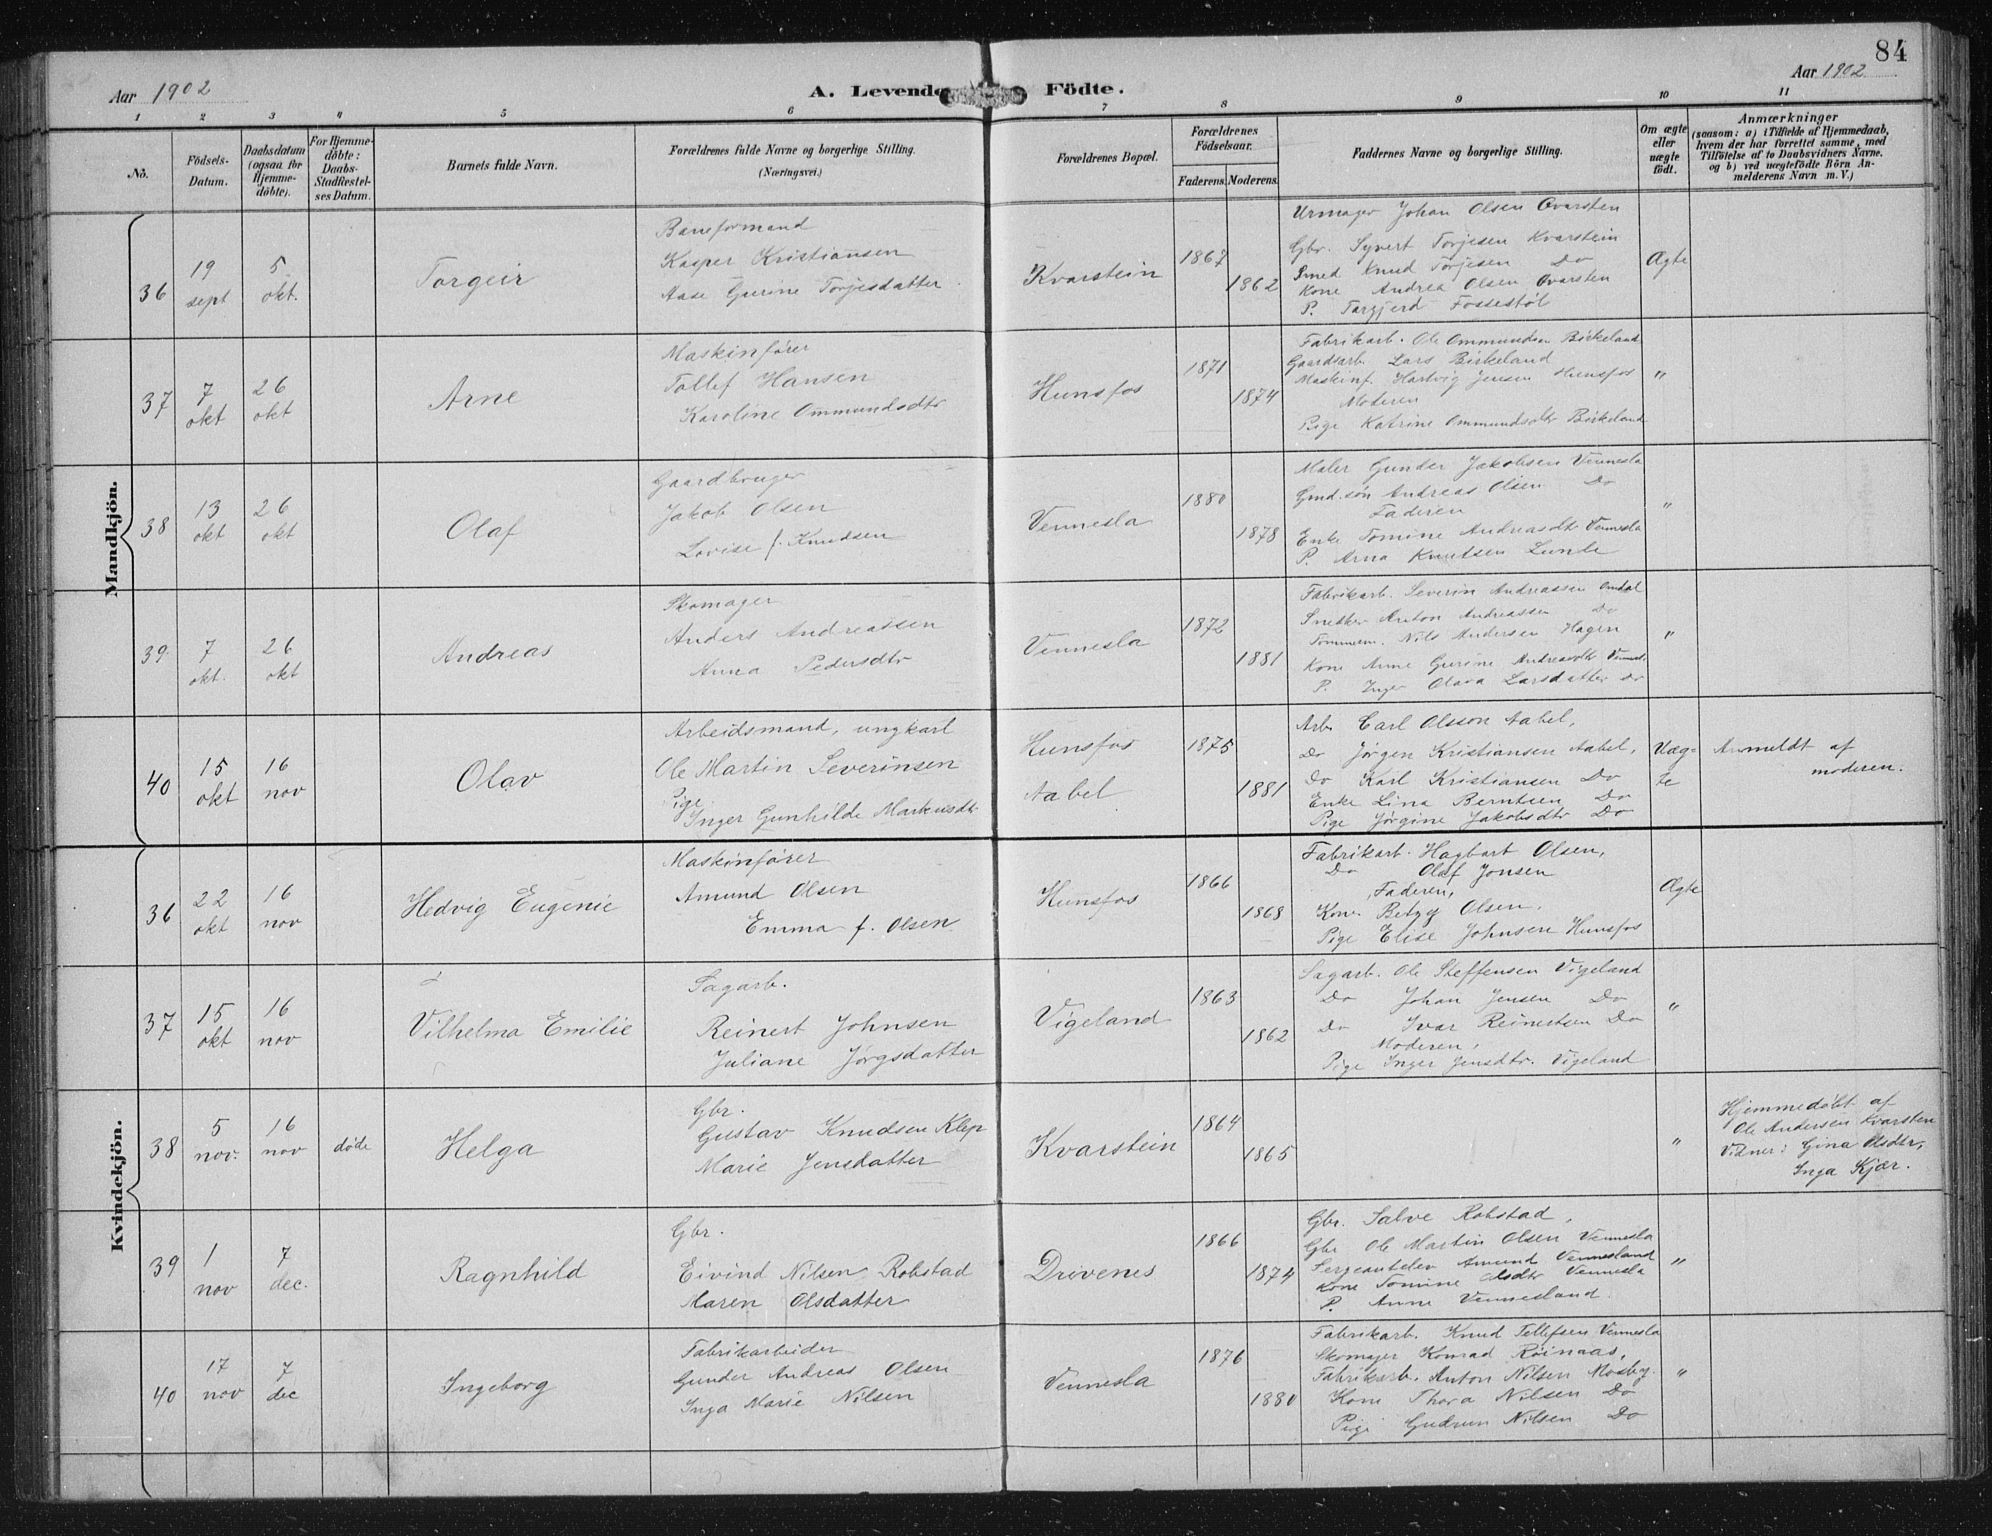 84
Aar 1902
A. Levende Födte.
Aar 1902
1 2 3 4 5 6 7 8 9 10 11
No.
Födsels-Datum.
Daabsdatum (ogsaa for Hjemmedöbte).
For Hjemmedöbte: Daabs-Stadfæstelses Datum.
Barnets fulde Navn.
Forældrenes fulde Navne og borgerlige Stilling.
(Næringsvei.)
Forældrenes Bopæl.
Forældrenes Födselsaar.
Faderens. Moderens.
Faddernes Navne og borgerlige Stilling.
Om ægte eller uægte födt.
Anmærkninger
(saasom: a) i Tilfælde af Hjemmedaab,
hvem der har forrettet samme, med
Tilföielse af to Daabsvidners Navne,
og b) ved uægtefödte Börn An-
melderens Navn m. V.)
Mandkjön.
36
19 sept
5 okt.
Torgeir
Baneformand
Kasper Kristiansen
Aase Gurine Torjesdatter
Kvarstein
1867
1862
Urmager Johan Olsen Qvarsten
Gbr. Syvert Torjesen Kvarstein
Smed Knud Torjesen Do
Kone Andrea Olsen Qvarsten
P. Targjerd Fossestøl
Ægte
37
7 okt
26 okt
Arne
Maskinfører
Tollef Hansen
Karoline Ommundsdtr
Hunsfos
1871
1874
Fabrikarb. Ole Ommundsen Birkeland
Gaardsarb. Lars Birkeland
Maskinf. Hartvig Jensen Hunsfos
Moderen
Pige Katrine Ommundsdtr Birkeland
"
38
13 okt
26 okt
Olaf
Gaardbruger
Jakob Olsen
Lovise f. Knudsen
Vennesla
1880
1878
Maler Gunder Jakobsen Vennesla
Gmd.søn Andreas Olsen Do
Faderen
Enke Tomine Andreasdtr Vennesla
P. Arna Knutsen Lunde
"
39
7 okt.
26 okt
Andreas
Skomager
Anders Andreassen
Anna Pedersdtr
Vennesla
1872
1881
Fabrikarb. Severin Andreassen Omdal
Snedker Anton Andreassen Do
Tømmerm. Nils Andersen Hagen
Kone Anne Gurine Andreasdtr Vennesl.
P. Inger Olava Larsdatter Do
"
40
15 okt
16 nov
Olav
Arbeidsmand, ungkarl
Ole Martin Severinsen
Pige
Inger Gunhilde Markusdtr
Hunsfos
Aabel
1875
1881
Arb. Carl Olsson Aabel,
Do Jørgen Kristiansen Aabel,
Do Karl Kristiansen Do
Enke Lina Berntsen Do
Pige Jørgine Jakobsdtr Do
Uægte
Anmeldt af
moderen.
Kvindekjön.
36
22 okt
16 nov
Hedvig Eugenie
Maskinfører
Amund Olsen
Emma f. Olsen
Hunsfos
1866
1868
Fabrikarb. Hagbart Olsen,
Do Olaf Jonsen
Faderen,
Kone Betzy Olsen,
Pige Elise Johnsen Hunsfos
Ægte
37
15 okt
16 nov
Vilhelma Emilie
Sagarb.
Reinert Johnsen
Juliane Jørgsdatter
Vigeland
1863
1862
Sagarb. Ole Steffensen Vigeland
Do Johan Jensen Do
Do Ivar Reinertsen Do
Moderen,
Pige Inger Jensdtr. Vigeland
"
38
5 nov.
16 nov
døde
Helga
Gbr.
Gustav Knudsen Klep
Marie Jensdatter
Kvarstein
1864
1865
"
Hjemmedøbt af
Ole Andersen Kvarsten
Vidner: Gina Olsdtr,
Inga Kjær.
39
1 nov
7 dec.
Ragnhild
Gbr.
Eivind Nilsen Robstad
Maren Olsdatter
Drivenes
1866
1874
Gbr. Salve Robstad,
Gbr Ole Martin Olsen Vennesla
Sergeantelev Amund Vennesland
Kone Tomine Olsdtr Vennesla
P. Anne Vennesland.
"
40
17 nov
7 dec
Ingeborg
Fabrikarbeider
Gunder Andreas Olsen
Inga Marie Nilsen
Vennesla
1876
1880
Fabrikarb. Knud Tellefsen Vennesla
Skomager Konrad Röinaas,
Fabrikarb. Anton Nilsen Mosby.
Kone Thora Nilsen Do
Pige Gudrun Nilsen Do
"